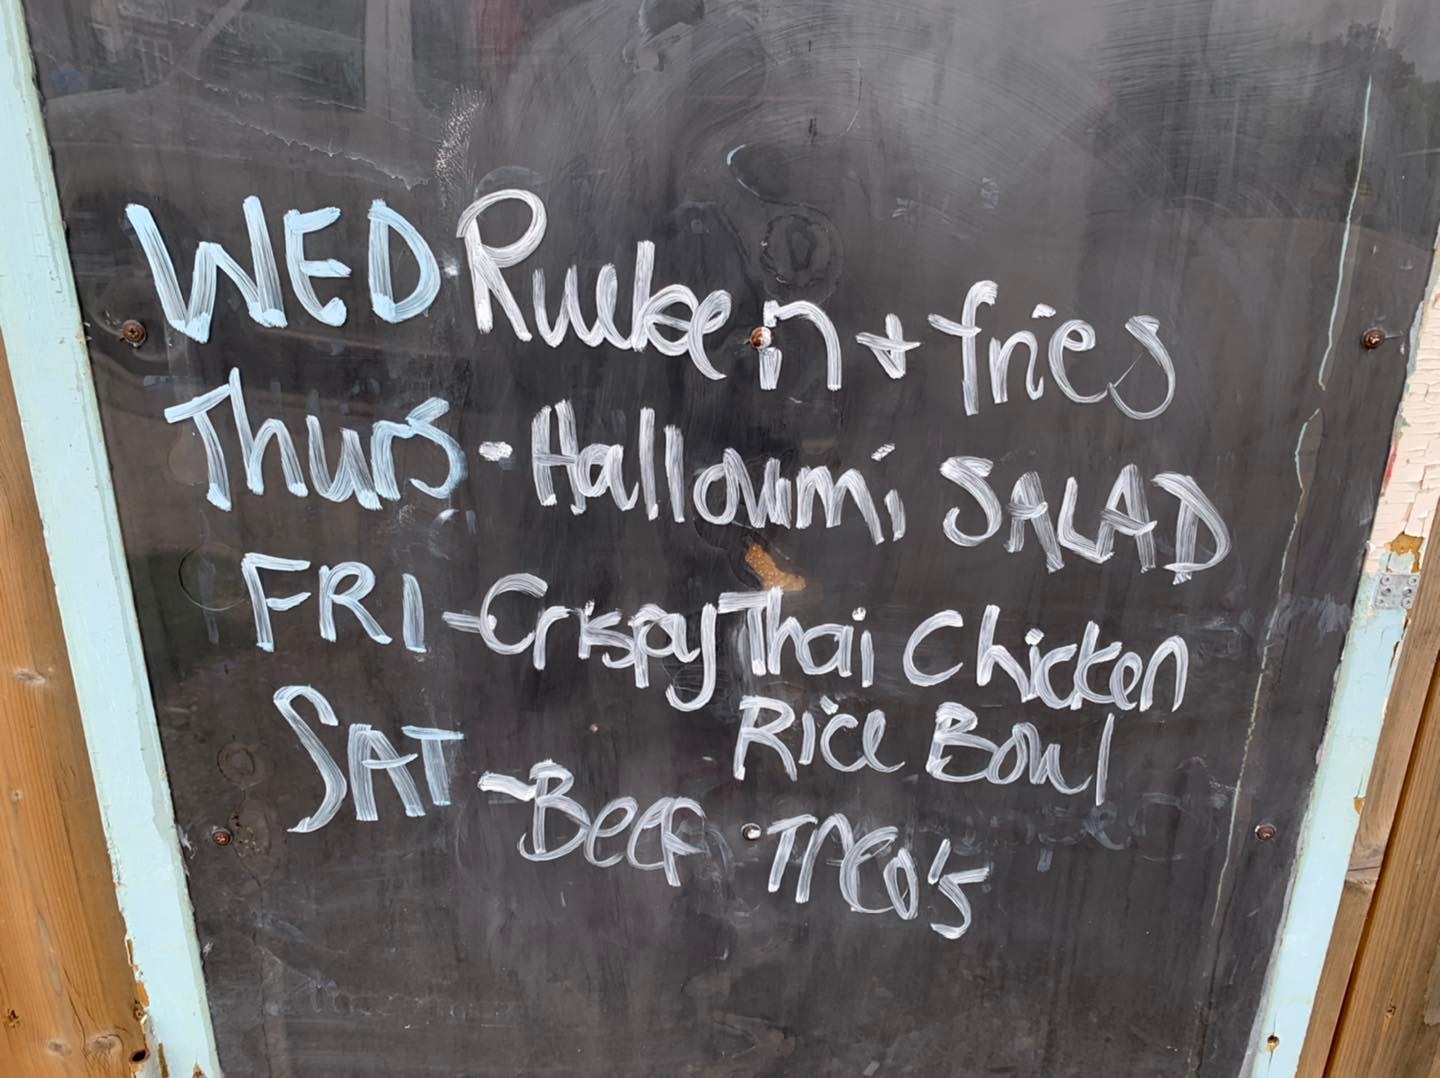 WED Rueben + fries
Thurs - Halloumi SALAD
FRI - Crispy Thai Chicken
Rice Bowl
SAT - Beef Taco's